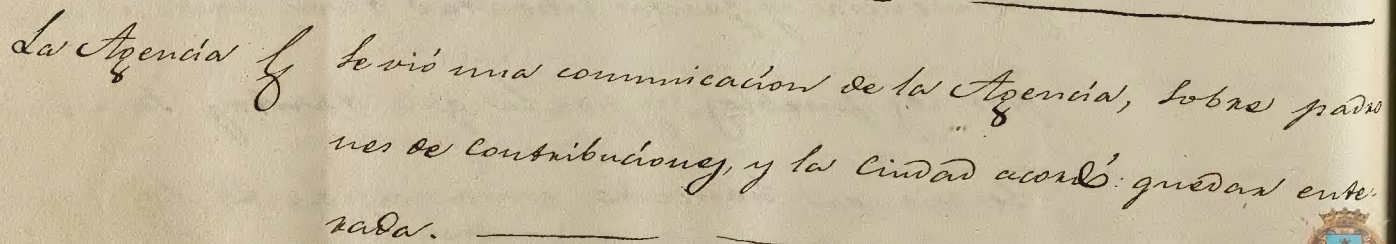 La Agencia § Se vió una comunicación de la Agencia, sobre padro
nes de contribuciones, y la Ciudad acordó: quedar ente-
rada.